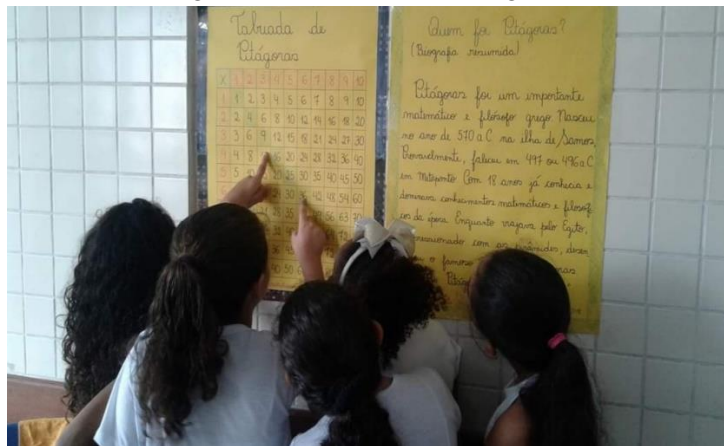 Tabuada de
Pitágoras
X 1 2 3 4 5 6 7 8 9 10
1 1 2 3 4 5 6 7 8 9 10
2 2 4 6 8 10 12 14 16 18 20
3 3 6 9 12 15 18 21 24 27 30
4 4 8 16 20 24 28 32 36 40
5 5 20 25 30 35 40 45 50
30 36 42 48 54 60
28 35 56 63 70
Quem foi Pitágoras?
(Biografia resumida)
Pitágoras foi um importante
matemático e filósofo grego. Nasceu
no ano de 570 a.C. na ilha de Samos.
Provavelmente, faleceu em 497 ou 496 a.C
em Metaponto. Com 18 anos já conhecia e
dominava conhecimentos matemáticos e filosófi
cos da época. Enquanto viajava pelo Egito,
impressionado com as pirâmides, desen
o famoso